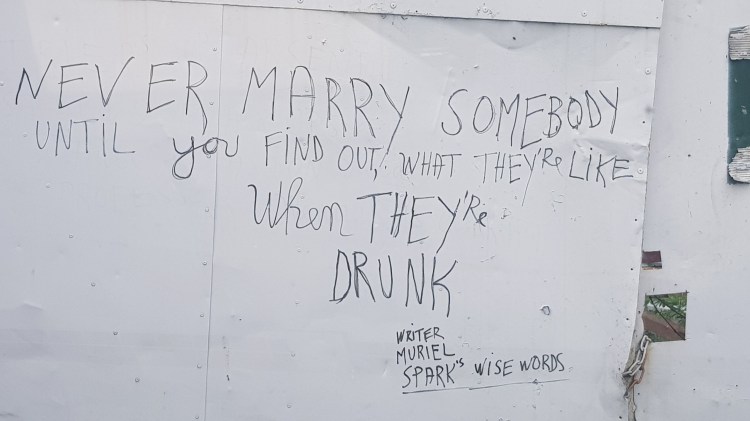 NEVER MARRY SOMEBODY
UNTIL you FIND OUT, WHAT THEY'Re LIKE
When THEY'Re
DRUNK
WRITER
MURIEL
SPARK's WISE WORDS